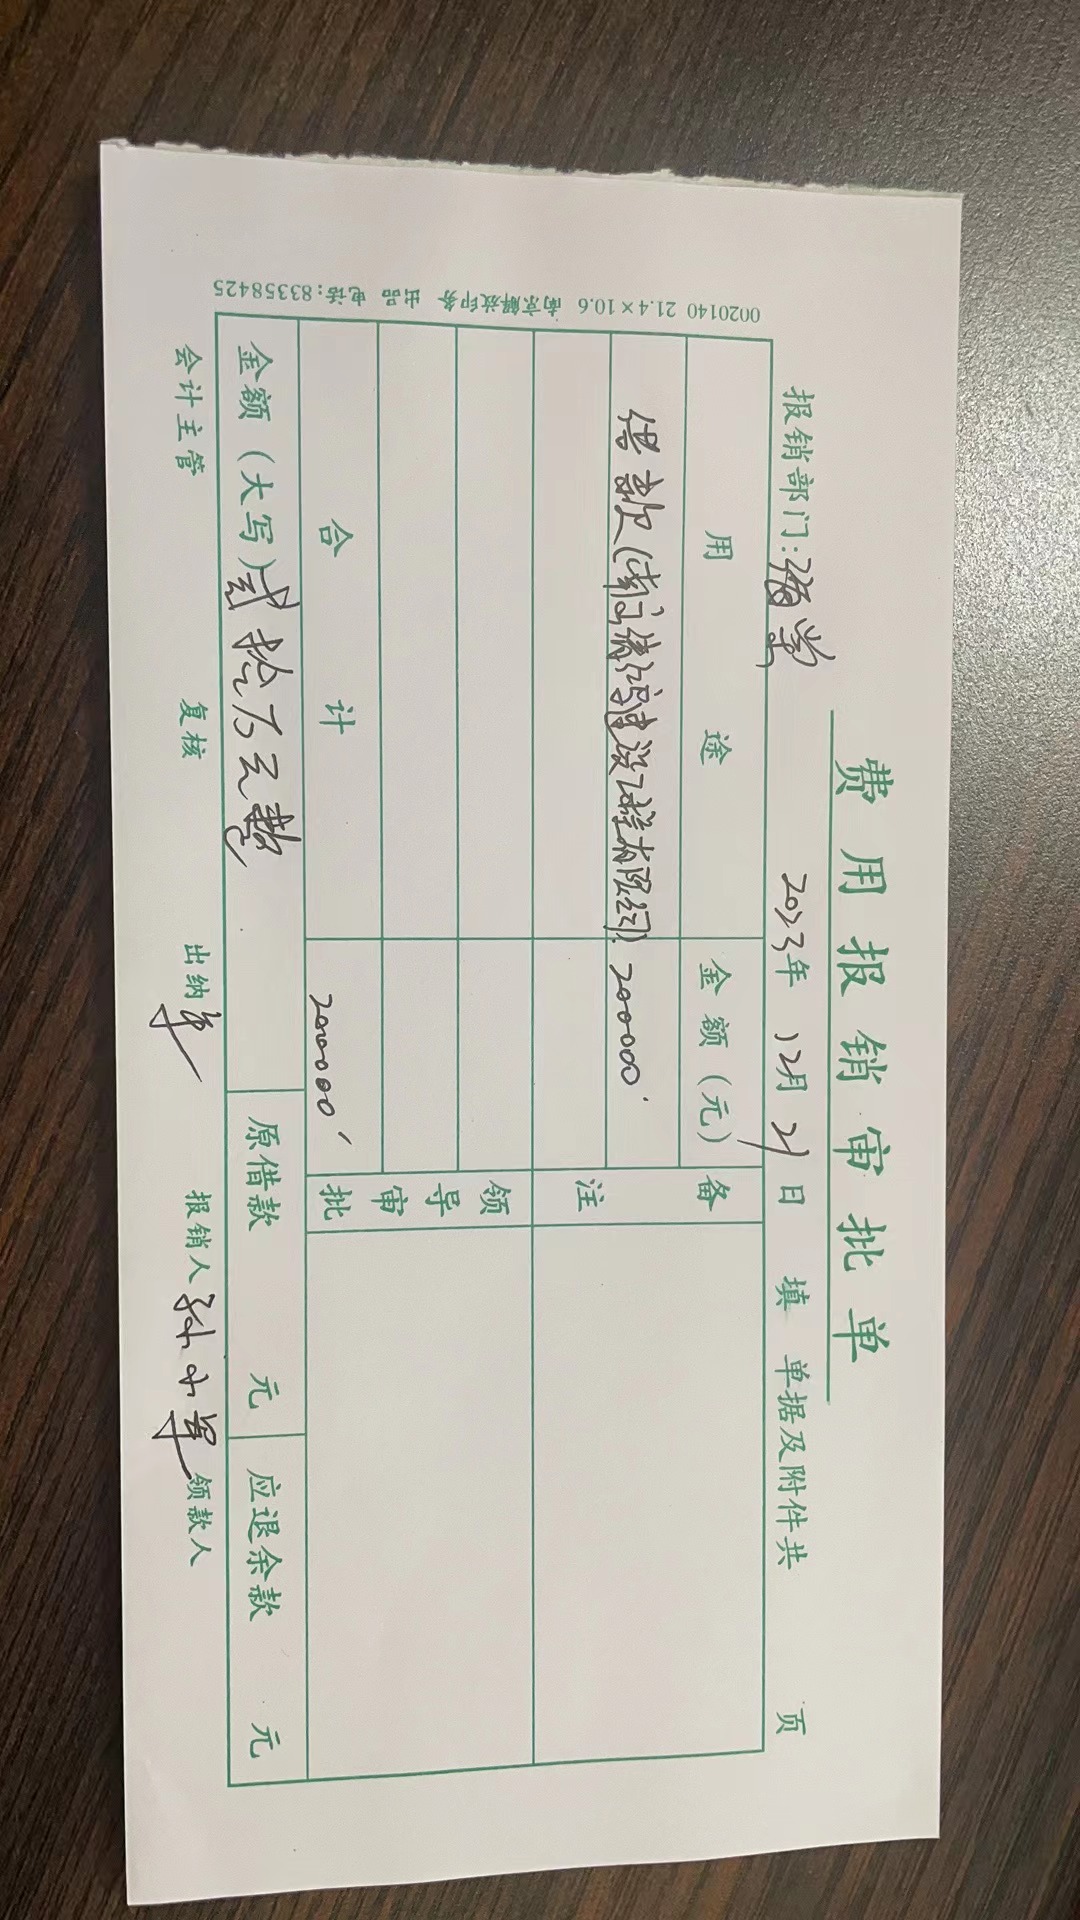 费用报销审批单
报销部门: 2023年 12月 21日 填 单据及附件共 页
用途 金额(元) 备注
借款(南京 鸿建设工程有限公司) 200000
合计 200000 领导审批
金额(大写) 贰拾万元整 原借款 元 应退余款 元
会计主管 复核 出纳 报销人 孙小军 领款人
0020140 21.4×10.6 南京解放印务 出品 电话:83358425